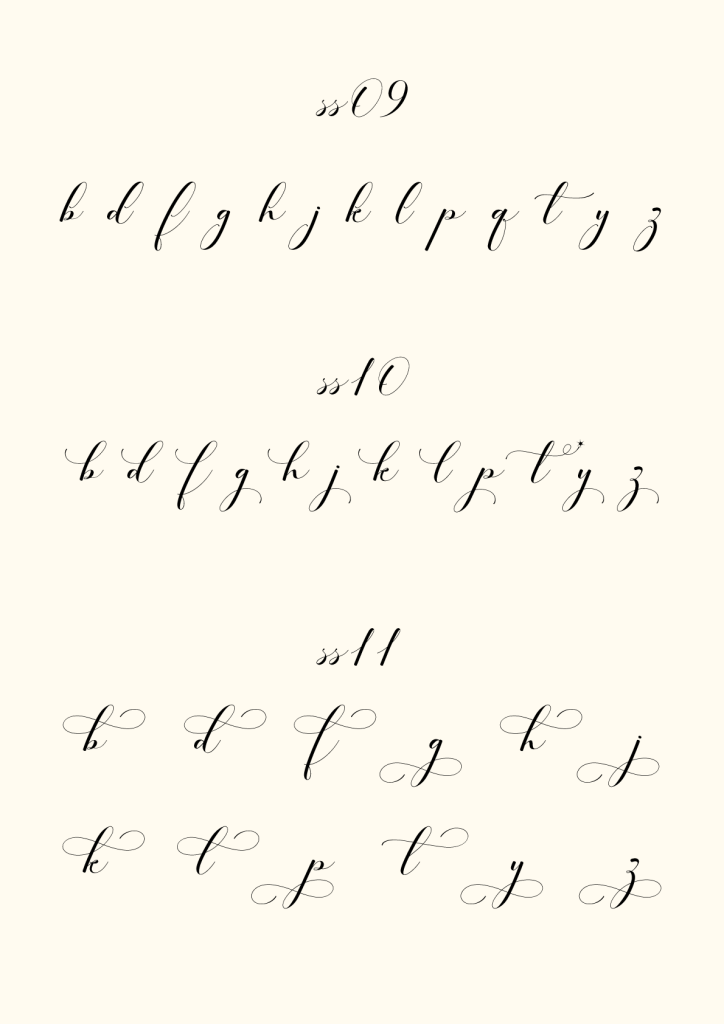 ss09
b d f g h j k l p q t y z
ss10
b d f g h j k l p t y z
ss11
b d f g h j
k l p t y z